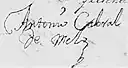 Antonio Cabral
de Mello